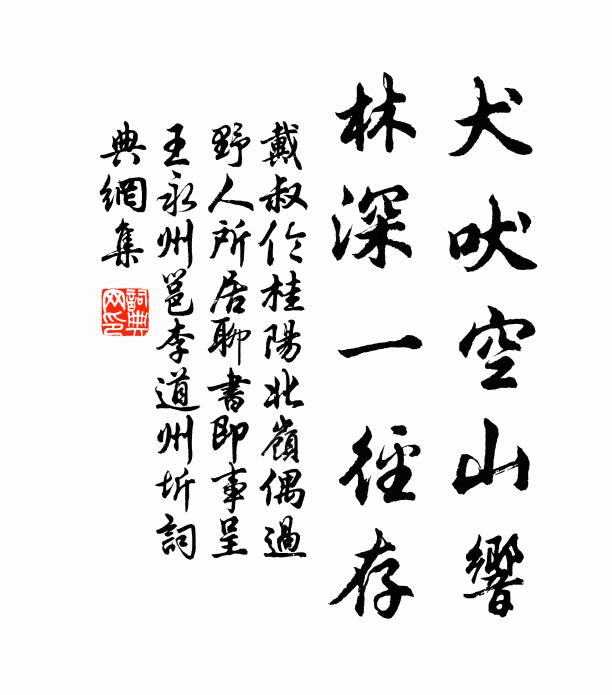 犬吠空山響
林深一徑存
戴叔伦桂陽北嶺偶過
野人所居聊書即事呈
王永州邕李道州圻詞
典網集
詞典
网印